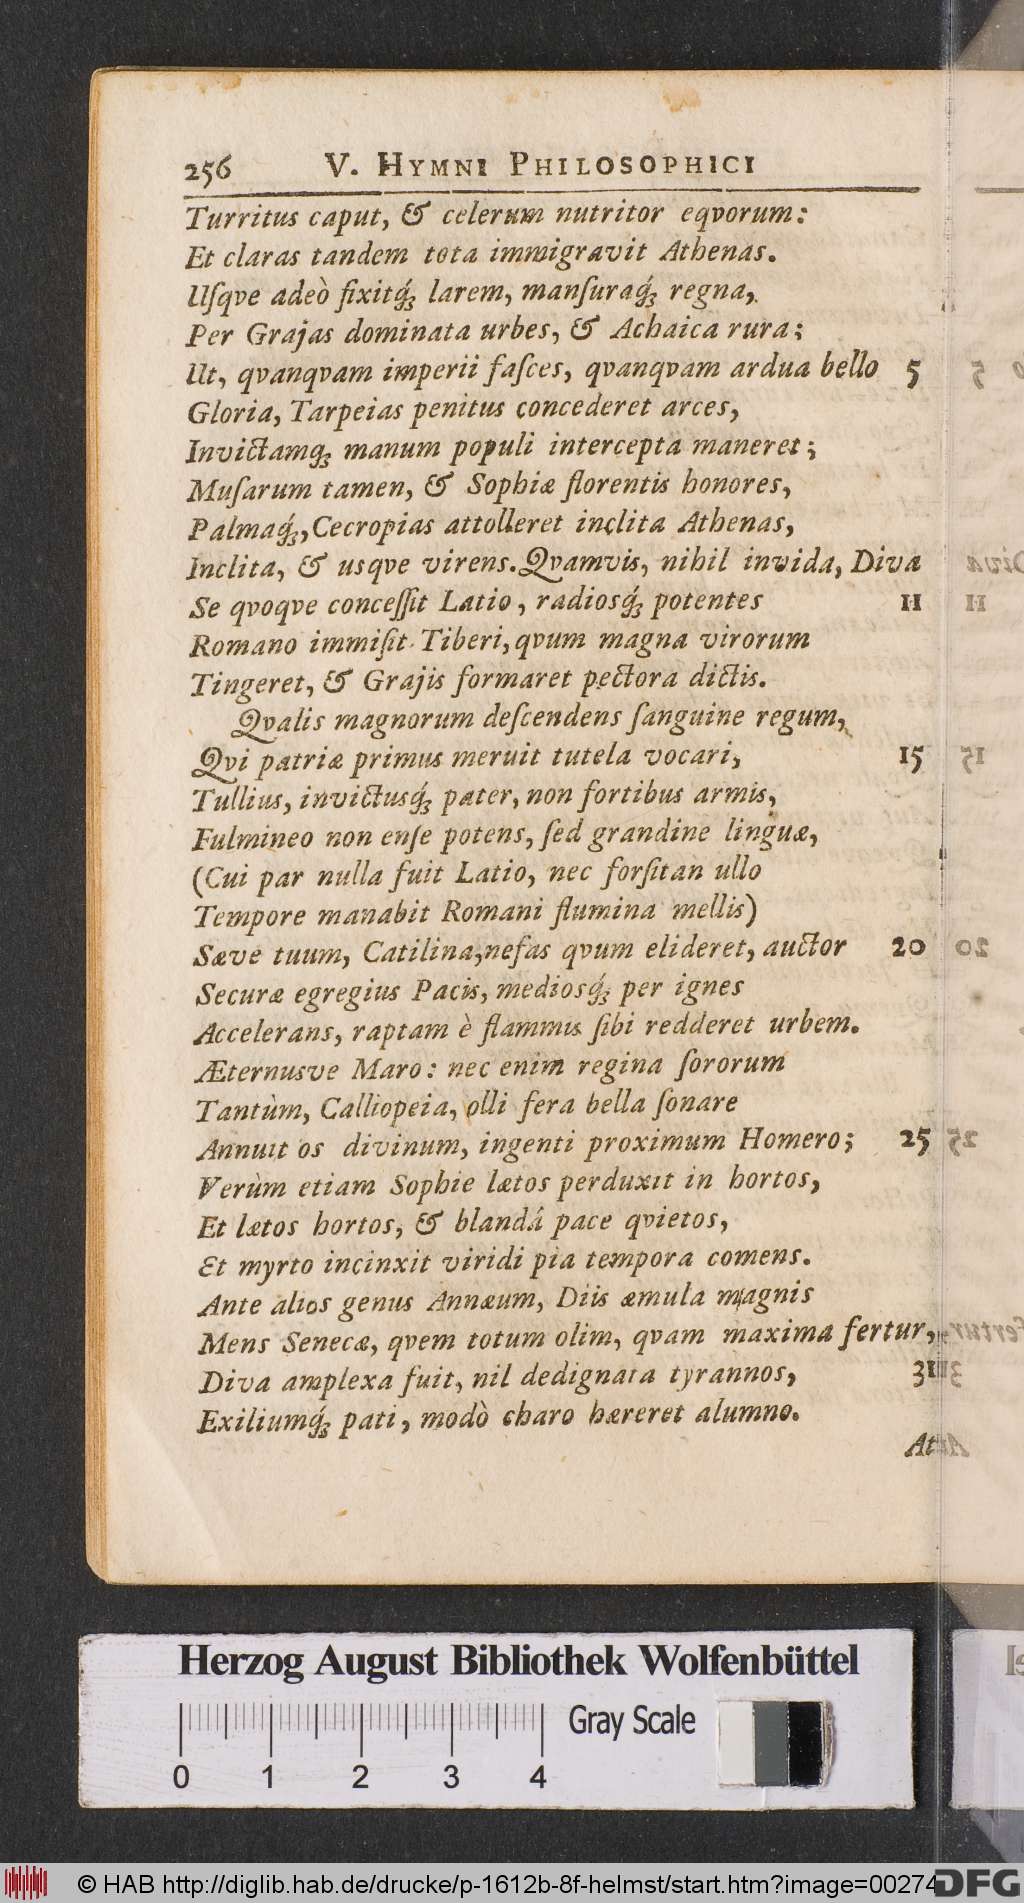 256 V. HYMNI PHILOSOPHICI
Turritus caput, & celerum nutritor eqvorum:
Et claras tandem tota immigravit Athenas.
Uſqve adeò fixitq́ꝫ larem, manſuraq́ꝫ regna,
Per Grajas dominata urbes, & Achaica rura;
Ut, qvanqvam imperii faſces, qvanqvam ardua bello 5
Gloria, Tarpeias penitus concederet arces,
Invictamqꝫ manum populi intercepta maneret;
Muſarum tamen, & Sophiæ florentis honores,
Palmaq́ꝫ, Cecropias attolleret inclita Athenas,
Inclita, & usqve virens. Qvamvis, nihil invida, Diva
Se qvoqve conceſſit Latio, radiosq́ꝫ potentes 11
Romano immiſit Tiberi, qvum magna virorum
Tingeret, & Grajis formaret pectora dictis.
Qvalis magnorum deſcendens ſanguine regum,
Qvi patriæ primus meruit tutela vocari, 15
Tullius, invictusq́ꝫ pater, non fortibus armis,
Fulmineo non enſe potens, ſed grandine linguæ,
(Cui par nulla fuit Latio, nec forſitan ullo
Tempore manabit Romani flumina mellis)
Sæve tuum, Catilina, nefas qvum elideret, auctor 20
Securæ egregius Pacis, mediosq́ꝫ per ignes
Accelerans, raptam è flammis ſibi redderet urbem.
Æternusve Maro: nec enim regina ſororum
Tantùm, Calliopeia, olli fera bella ſonare
Annuit os divinum, ingenti proximum Homero; 25
Verùm etiam Sophie lætos perduxit in hortos,
Et lætos hortos, & blandá pace qvietos,
Et myrto incinxit viridi pia tempora comens.
Ante alios genus Annæum, Diis æmula magnis
Mens Senecæ, qvem totum olim, qvam maxima fertur,
Diva amplexa fuit, nil dedignata tyrannos, 31
Exiliumq́ꝫ pati, modò charo hæreret alumno.
At
Herzog August Bibliothek Wolfenbüttel
Gray Scale
0 1 2 3 4
© HAB http://diglib.hab.de/drucke/p-1612b-8f-helmst/start.htm?image=00274
DFG